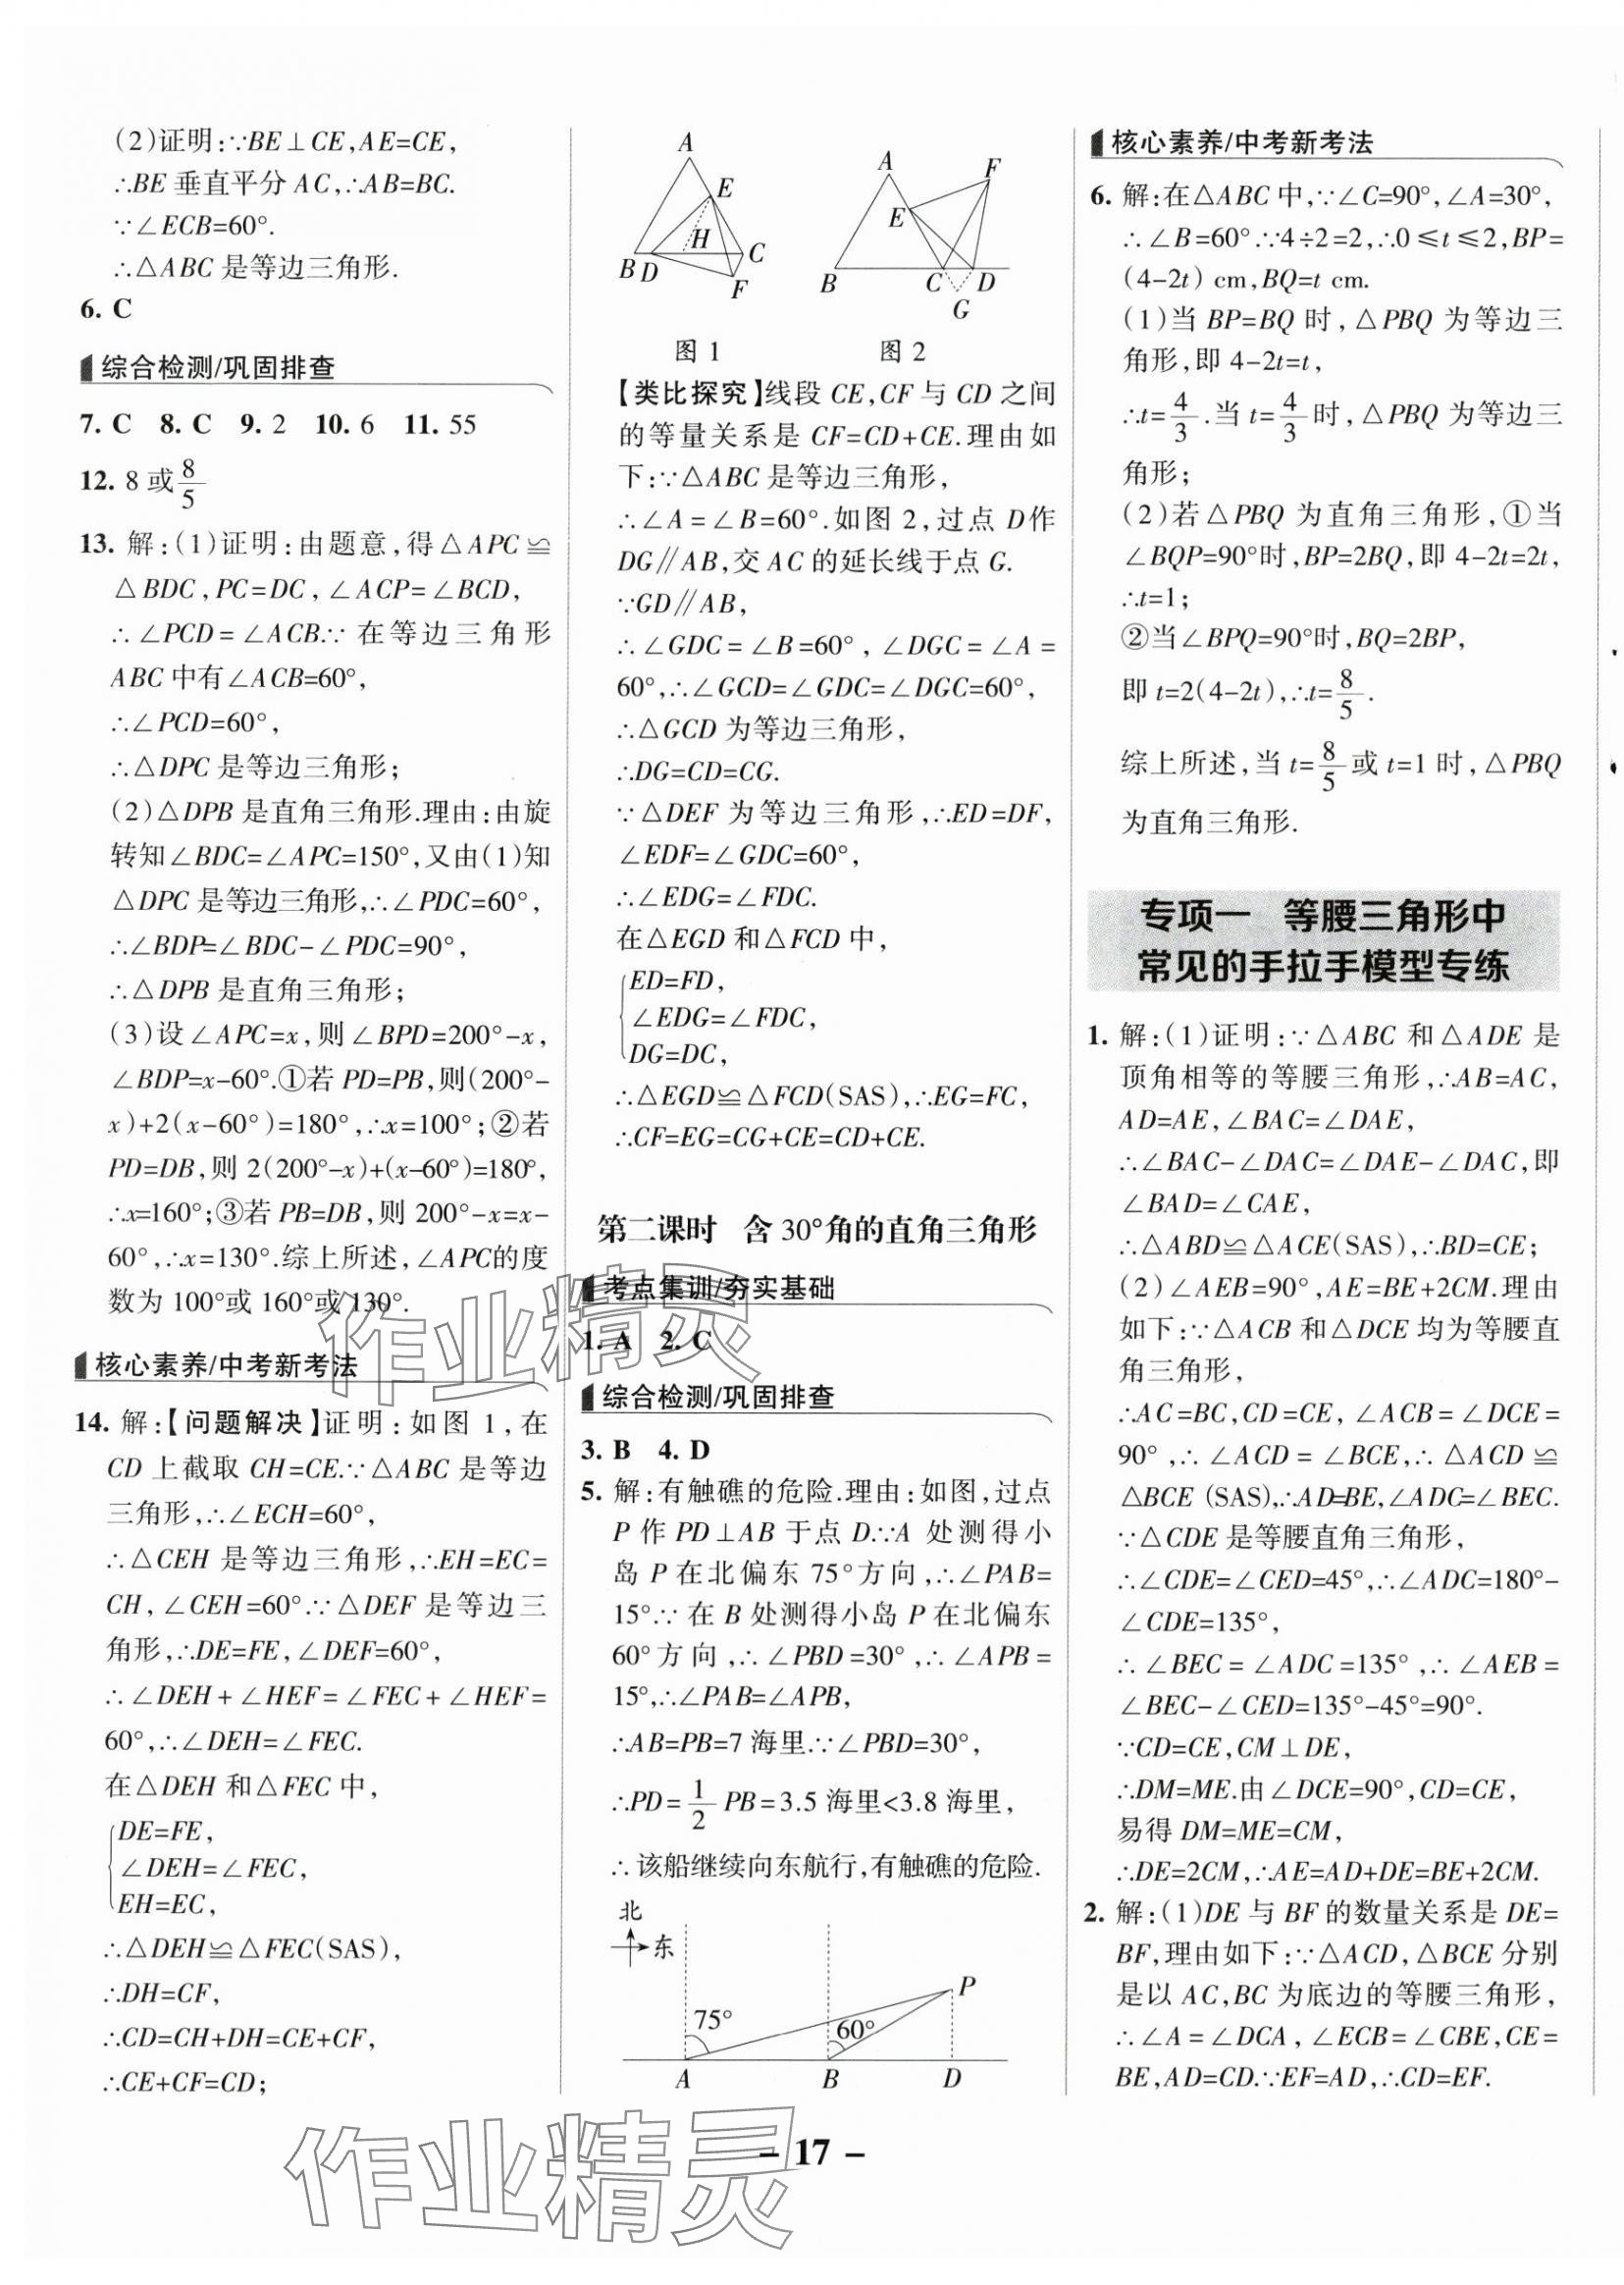 (2)证明:∵BE⊥CE,AE=CE,
∴BE 垂直平分 AC,∴AB=BC.
∵∠ECB=60°.
∴△ABC 是等边三角形.
6. C
综合检测/巩固排查
7. C 8. C 9. 2 10. 6 11. 55
12. 8 或 8/5
13. 解:(1)证明:由题意,得△APC≌
△BDC,PC=DC,∠ACP=∠BCD,
∴∠PCD=∠ACB.∵在等边三角形
ABC 中有∠ACB=60°,
∴∠PCD=60°,
∴△DPC 是等边三角形;
(2)△DPB 是直角三角形.理由:由旋
转知∠BDC=∠APC=150°,又由(1)知
△DPC 是等边三角形,∴∠PDC=60°,
∴∠BDP=∠BDC-∠PDC=90°,
∴△DPB 是直角三角形;
(3)设∠APC=x,则∠BPD=200°-x,
∠BDP=x-60°.①若 PD=PB,则(200°-
x)+2(x-60°)=180°,∴x=100°;②若
PD=DB,则 2(200°-x)+(x-60°)=180°,
∴x=160°;③若 PB=DB,则 200°-x=x-
60°,∴x=130°.综上所述,∠APC的度
数为 100°或 160°或 130°.
核心素养/中考新考法
14. 解:【问题解决】证明:如图 1,在
CD 上截取 CH=CE.∵△ABC 是等边
三角形,∴∠ECH=60°,
∴△CEH 是等边三角形,∴EH=EC=
CH,∠CEH=60°.∵△DEF 是等边三
角形,∴DE=FE,∠DEF=60°,
∴∠DEH+∠HEF=∠FEC+∠HEF=
60°,∴∠DEH=∠FEC.
在△DEH 和△FEC 中,
DE=FE,
∠DEH=∠FEC,
EH=EC,
∴△DEH≌△FEC(SAS),
∴DH=CF,
∴CD=CH+DH=CE+CF,
∴CE+CF=CD;
A
E
H
B D
C
F
图 1
A
F
E
B
C
D
G
图 2
【类比探究】线段 CE,CF 与 CD 之间
的等量关系是 CF=CD+CE.理由如
下:∵△ABC 是等边三角形,
∴∠A=∠B=60°.如图 2,过点 D作
DG∥AB,交 AC 的延长线于点 G.
∵GD∥AB,
∴∠GDC=∠B=60°,∠DGC=∠A=
60°,∴∠GCD=∠GDC=∠DGC=60°,
∴△GCD 为等边三角形,
∴DG=CD=CG.
∵△DEF 为等边三角形,∴ED=DF,
∠EDF=∠GDC=60°,
∴∠EDG=∠FDC.
在△EGD 和△FCD 中,
ED=FD,
∠EDG=∠FDC,
DG=DC,
∴△EGD≌△FCD(SAS),∴EG=FC,
∴CF=EG=CG+CE=CD+CE.
第二课时 含 30°角的直角三角形
考点集训/夯实基础
1. A 2. C
综合检测/巩固排查
3. B 4. D
5. 解:有触礁的危险.理由:如图,过点
P 作 PD⊥AB 于点 D.∵A 处测得小
岛 P 在北偏东 75°方向,∴∠PAB=
15°.∵在 B 处测得小岛 P 在北偏东
60°方向,∴∠PBD=30°,∴∠APB=
15°,∴∠PAB=∠APB,
∴AB=PB=7 海里.∵∠PBD=30°,
∴PD=1/2 PB=3.5 海里<3.8 海里,
∴该船继续向东航行,有触礁的危险.
北
东
75°
60°
P
A
B
D
核心素养/中考新考法
6. 解:在△ABC 中,∵∠C=90°,∠A=30°,
∴∠B=60°.∵4÷2=2,∴0≤t≤2,BP=
(4-2t) cm,BQ=t cm.
(1)当 BP=BQ 时,△PBQ 为等边三
角形,即 4-2t=t,
∴t=4/3.当 t=4/3时,△PBQ 为等边三
角形;
(2)若△PBQ 为直角三角形,①当
∠BQP=90°时,BP=2BQ,即 4-2t=2t,
∴t=1;
②当∠BPQ=90°时,BQ=2BP,
即 t=2(4-2t),∴t=8/5.
综上所述,当 t=8/5或 t=1 时,△PBQ
为直角三角形.
专项一 等腰三角形中
常见的手拉手模型专练
1. 解:(1)证明:∵△ABC 和△ADE 是
顶角相等的等腰三角形,∴AB=AC,
AD=AE,∠BAC=∠DAE,
∴∠BAC-∠DAC=∠DAE-∠DAC,即
∠BAD=∠CAE,
∴△ABD≌△ACE(SAS),∴BD=CE;
(2)∠AEB=90°,AE=BE+2CM.理由
如下:∵△ACB 和△DCE 均为等腰直
角三角形,
∴AC=BC,CD=CE,∠ACB=∠DCE=
90°,∴∠ACD=∠BCE,∴△ACD≌
△BCE (SAS),∴AD=BE,∠ADC=∠BEC.
∵△CDE 是等腰直角三角形,
∴∠CDE=∠CED=45°,∴∠ADC=180°-
∠CDE=135°,
∴∠BEC=∠ADC=135°,∴∠AEB=
∠BEC-∠CED=135°-45°=90°.
∵CD=CE,CM⊥DE,
∴DM=ME.由∠DCE=90°,CD=CE,
易得 DM=ME=CM,
∴DE=2CM,∴AE=AD+DE=BE+2CM.
2. 解:(1)DE 与 BF 的数量关系是 DE=
BF,理由如下:∵△ACD,△BCE 分别
是以 AC,BC 为底边的等腰三角形,
∴∠A=∠DCA,∠ECB=∠CBE,CE=
BE,AD=CD.∵EF=AD,∴CD=EF.
- 17 -
作业精灵
作业精灵